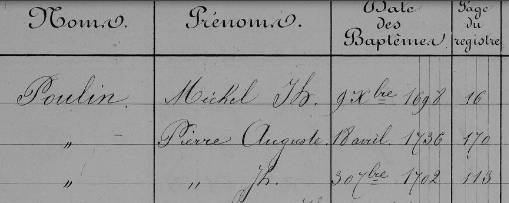 Noms. Prénoms. Date des Baptêmes. Page du registre
Poulin. Michel Jh. 9 Xbre 1698 16
" Pierre Auguste. 18 avril. 1736 170
" " Jh. 30 7bre 1702 113